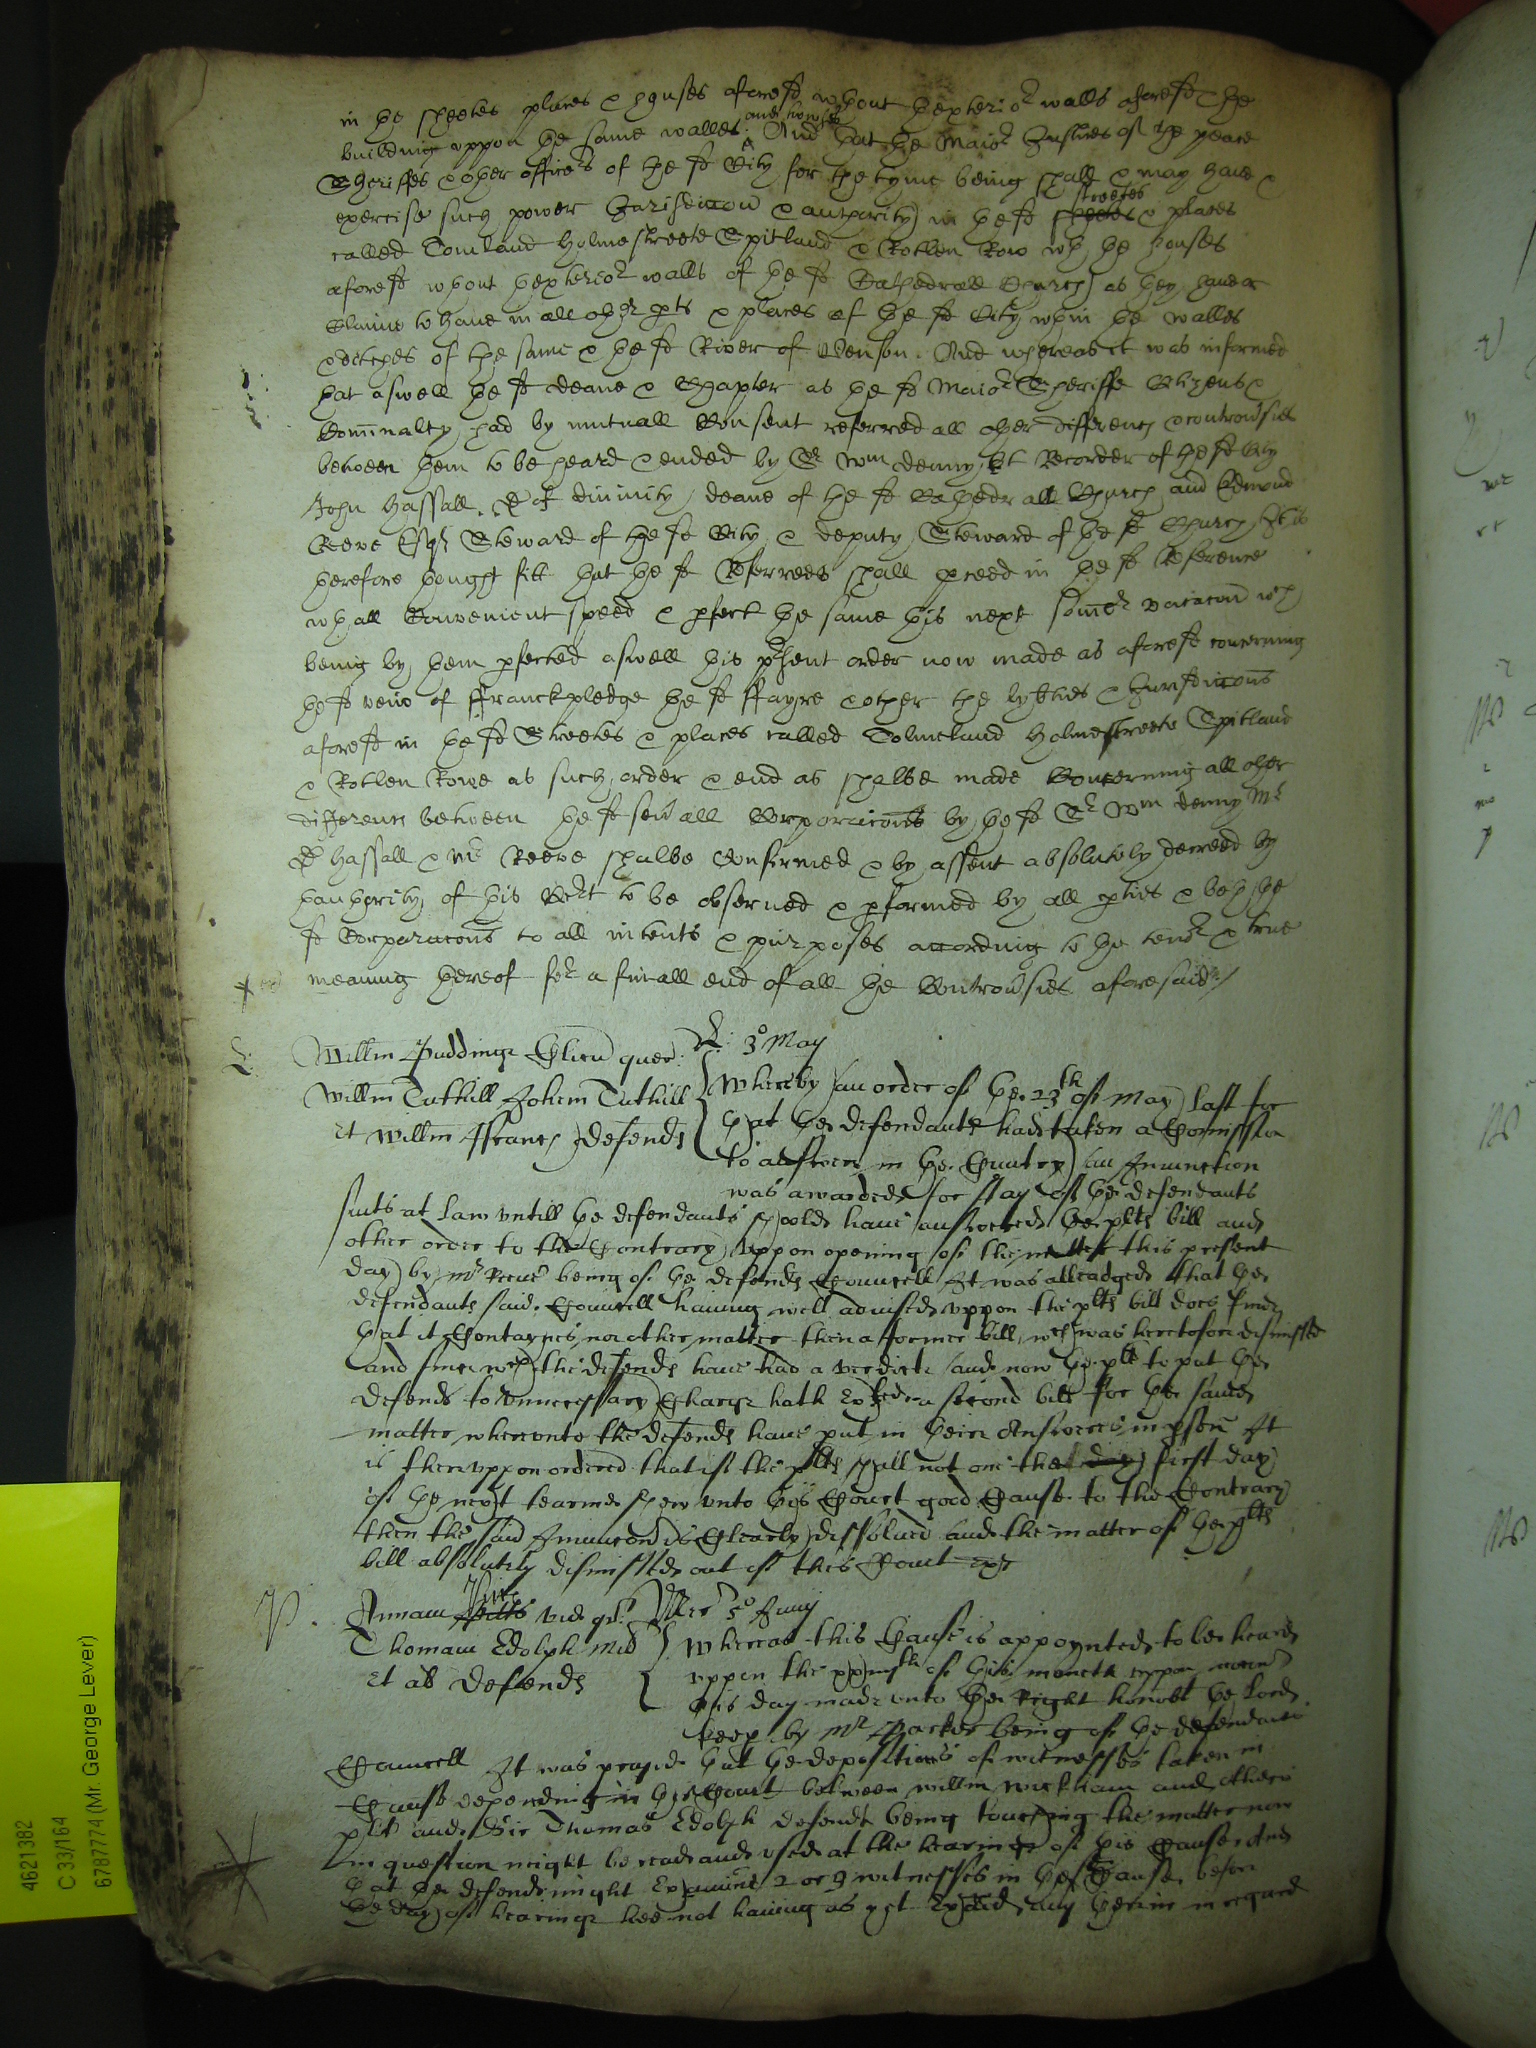 in the streetes places & houses aforesd wthout thexterior walls aforesd & the
building uppon the same walles and howses And that the Maior Justices of the peace
Sheriffes & other officers of the sd City for the tyme being shall & may have &
exercise such power Jurisdiccon & authority in the sd streetes & places
called Tomland Holmestreete Spitland & Rotten Row wth the houses
aforesd wthout thexterior walls of the sd Cathedrall Church as they have or
Claime to have in all other pts & places of the sd City wthin the walles
& ditches of the same & the sd River of Wenson. And whereas it was informed
that aswell the sd deane & Chapter as the sd Maior Sheriffe Citizens &
Comnalty had by mutuall Consent referred all other differencs & controvsies
between them to be heard & ended by Sr Wm denny kt Recorder of the sd City
John Hassall Dr of divinity deane of the sd Cathedrall Church and Edmond
Reeve Esqr Steward of the sd City & deputy Steward of the sd Church It is
therefore thought fitt that the sd Referrees shall pceed in the sd Reference
wth all Convenient speed & pfect the same this next somer vacacon wch
being by them pfected aswell this psent order now made as aforesd concerning
the sd veiw of ffranckpledge the sd ffayre & other the lybties & Jurisdiccons
aforesd in the sd Streetes & places called Tolmeland Holmestreete Spitland
& Rotten Rowe as such order & end as shalbe made Concerning all other
differencs between the sd sevall Corporacons by the sd Sr Wm denny Mr
Dr Hassall & Mr Reeve shalbe Confirmed & by assent absolutely decreed by
thauthority of this Court to be observed & pformed by all pties & both the
sd Corporacons to all intents & purposes according to the tenor & true
meaning thereof for a finall end of all the Controvsies aforesaid
Willm Puddinge Clicu quer: 30 May
Willm Tuthill Johem Tuthill Whereby an order of the 23th of May last for
et Willm ffrancs defends that the defendants had taken a Comission
to answer in the Cuntry an Iniunction
was awarded for stay of the defendants
suits at law untill the defendants should have answered the plts bill and
other order to the Contrary uppon opening of the matter this present
day by Mr Reeve being of the defends Councell It was alleadged that the
defendants said Councell having well advised uppon the plts bill does finde
that it Contaynes no other matter then a former bill wch was heretofore dismissed
and since wch the defends have had a verdicte and now the plt to put the
defends to Unnecessary Charge hath exhited a second bill for the same
matter whereunto the defends have put in their Answeres in pson It
is thereuppon ordered that if the plts shall not one the day first day
of the next tearme shew unto this Court good Cause to the Contrary
then the said Iniunccon is Clearly dissolved and the matter of the plts
bill absolutely dismissed out of this Court
Annam Pitts vid qr. Mer 50 Juny
Thomam Edolph Mil Whereas this Cause is appoynted to be heard
et als Defends uppon the of this moneth uppon mocon
this day made unto the Right honobl the Lord
keep by Mr Parker being of the defendants
Councell It was prayed that the depositions of witnesses taken in
Cause depending in this Court between Willm Wickham and others
plt and Sir Thomas Edolph defendt being touching the matter now
in question might be read and used at the hearinge of this Cause And
that the defends might Examine 2 or 3 witnesses in the sd Cause before
the day of hearinge hee not having as yet Exaied any therein in regard
4621382
C 33/164
6787774 (Mr. George Lever)